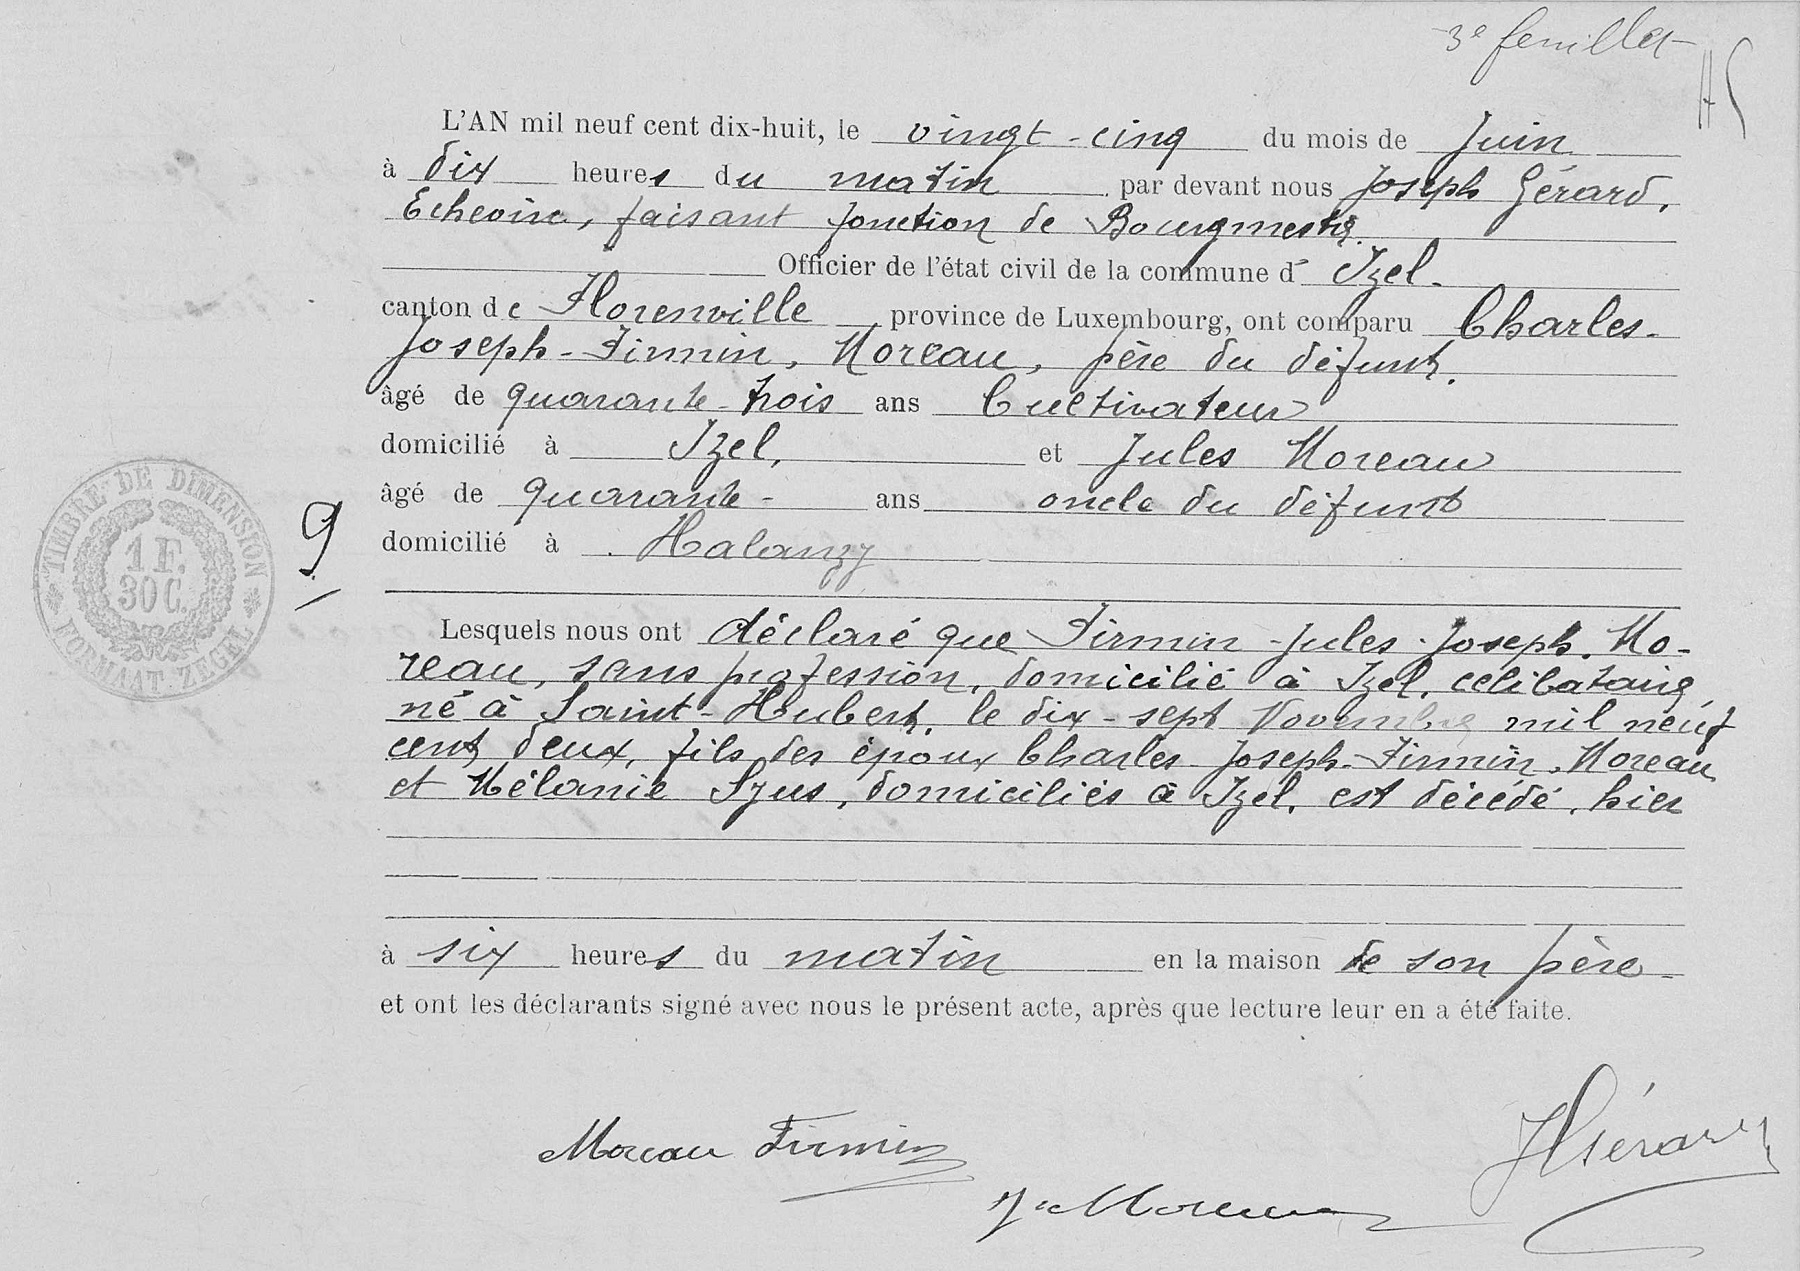 3e feuillet
L'AN mil neuf cent dix-huit, le vingt-cinq du mois de Juin
à dix heures du matin par devant nous Joseph Gérard,
Echevin, faisant fonction de Bourgmestre.
Officier de l'état civil de la commune d' Izel.
canton de Florenville province de Luxembourg, ont comparu Charles-
Joseph-Firmin, Moreau, père du défunt.
âgé de quarante-trois ans Cultivateur
domicilié à Izel, et Jules Moreau
âgé de quarante- ans oncle du défunt
domicilié à Halanzy
TIMBRE DE DIMENSION
1 F.
30 C.
FORMAAT ZEGEL
9
Lesquels nous ont déclaré que Firmin-Jules-Joseph. Mo-
reau, sans profession, domicilié à Izel, célibataire,
né à Saint-Hubert, le dix-sept Novembre mil neuf
cent deux, fils des époux Charles-Joseph-Firmin, Moreau
et Mélanie, domiciliés à Izel, est décédé, hier
à six heures du matin en la maison de son père-
et ont les déclarants signé avec nous le présent acte, après que lecture leur en a été faite.
Moreau Firmin
JGérard
J. Moreau